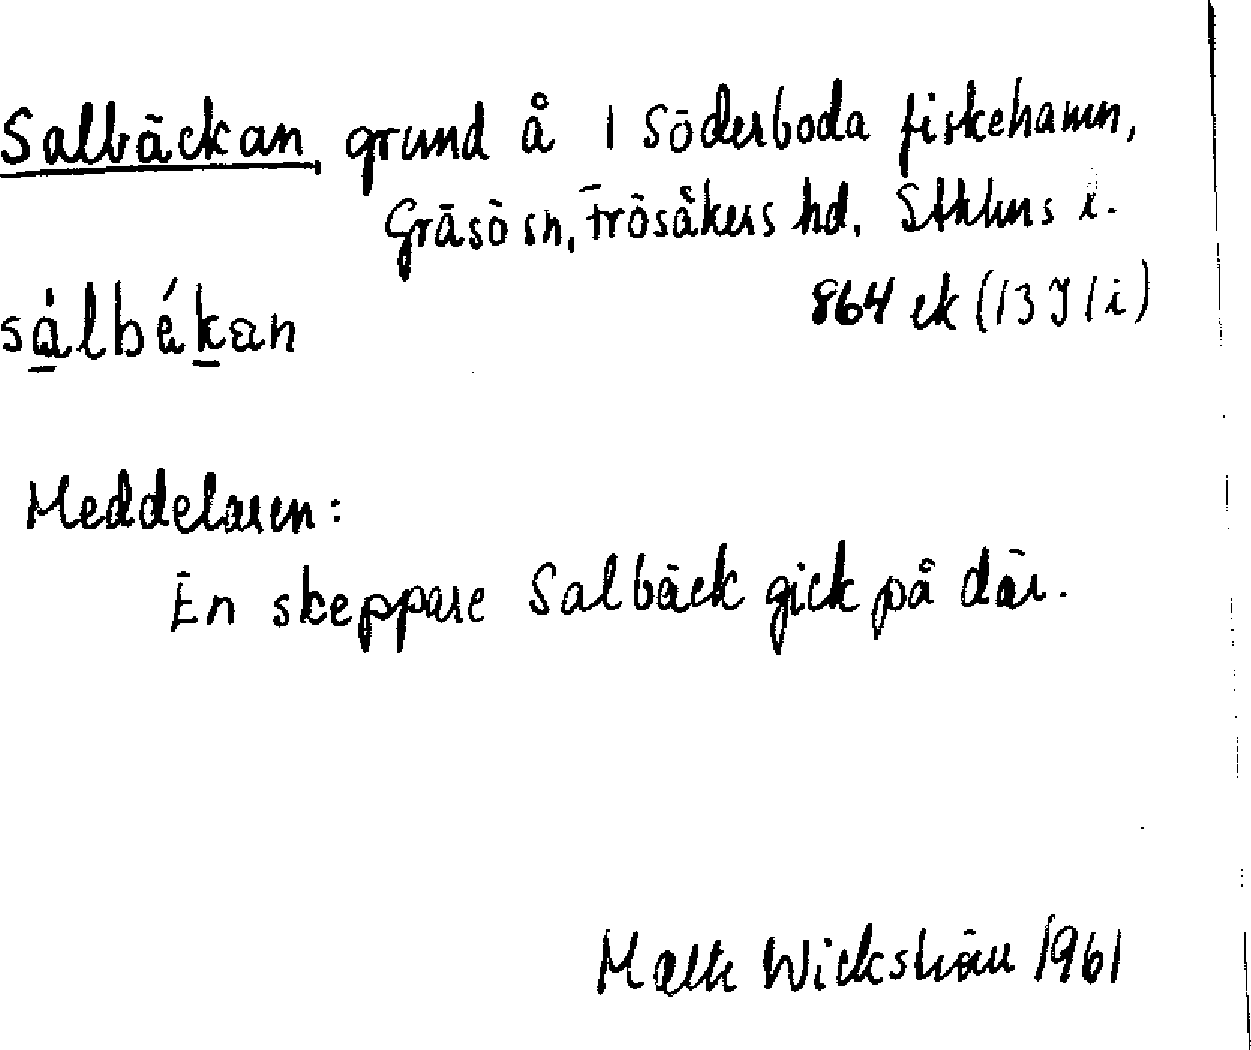 Salbäckan, grund å 1 Söderboda fiskehamn,
Gräsö sn, Frösåkers hd. Sthlms l.
864 ek (13 I 1 i)
sálbékan
Meddelaren:
En skeppare Salbäck gick på där.
Malte Wickström 1961